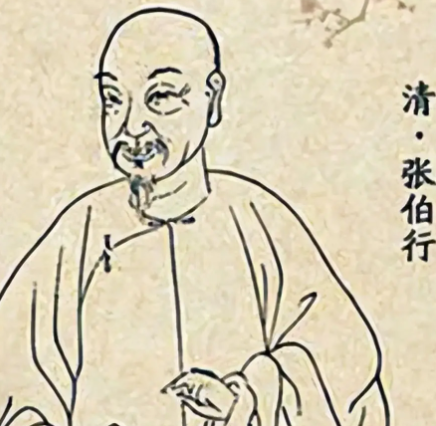 清·张伯行